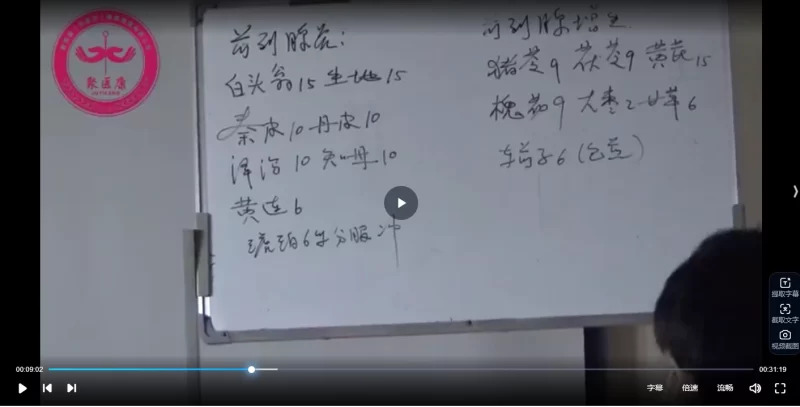 聚医康
前列腺炎:
白头翁15 生地15
秦皮10 丹皮10
泽泻10 知母10
黄连6
琥珀6 分服 冲
前列腺增生
猪苓9 茯苓9 黄芪15
槐花9 大枣2 甘草6
车前子6(包煎)
提取字幕
截取文字
视频截图
00:09:02
00:31:19
字幕
倍速
流畅